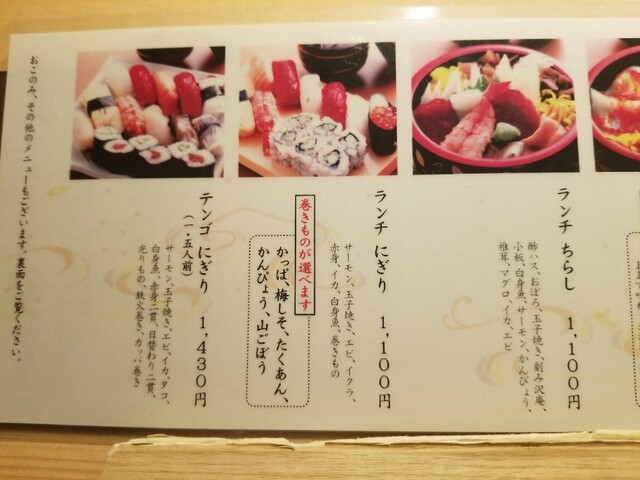 ランチ ちらし 1,100円
酢ハス、おぼろ、玉子焼き、刻み沢庵、
小板、白身魚、サーモン、かんぴょう、
椎茸、マグロ、イカ、エビ
ランチ にぎり 1,100円
サーモン、玉子焼き、エビ、イクラ、
赤身、イカ、白身魚、巻きもの
巻きものが選べます
かっぱ、梅しそ、たくあん、
かんぴょう、山ごぼう
テンゴ にぎり 1,430円
(一・五人前)
サーモン、玉子焼き、エビ、イカ、タコ、
白身魚、赤身二貫、日替わり二貫、
光りもの、鉄火巻き、カッパ巻き
おこのみ、その他のメニューもございます。裏面をご覧ください。